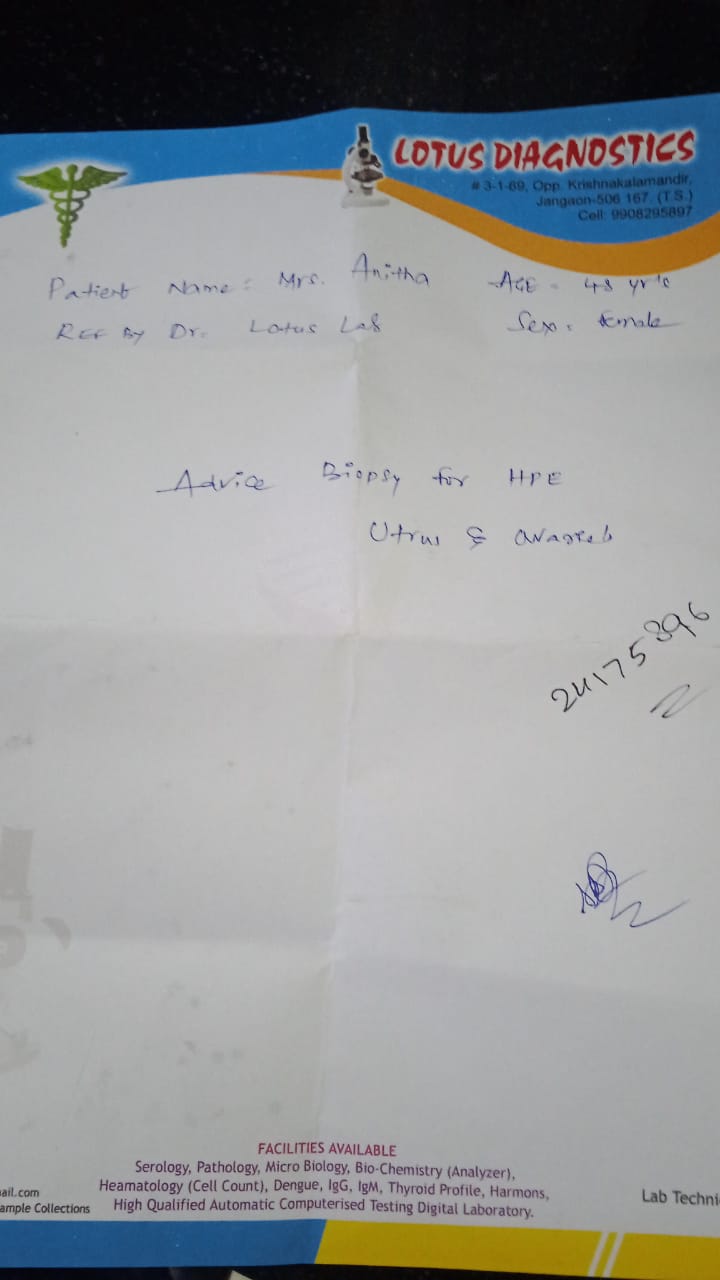 LOTUS DIAGNOSTICS
# 3-1-69, Opp. Krishnakalamandir,
Jangaon-506 167. (T.S.)
Cell: 9908295897
Patient Name : Mrs. Anitha AGE = 48 yr's
REF By Dr. Lotus Lab Sex : female
Advice Biopsy for HPE
Utrus &
24175896
FACILITIES AVAILABLE
Serology, Pathology, Micro Biology, Bio-Chemistry (Analyzer),
Heamatology (Cell Count), Dengue, IgG, IgM, Thyroid Profile, Harmons,
High Qualified Automatic Computerised Testing Digital Laboratory.
ail.com
ample Collections
Lab Techni